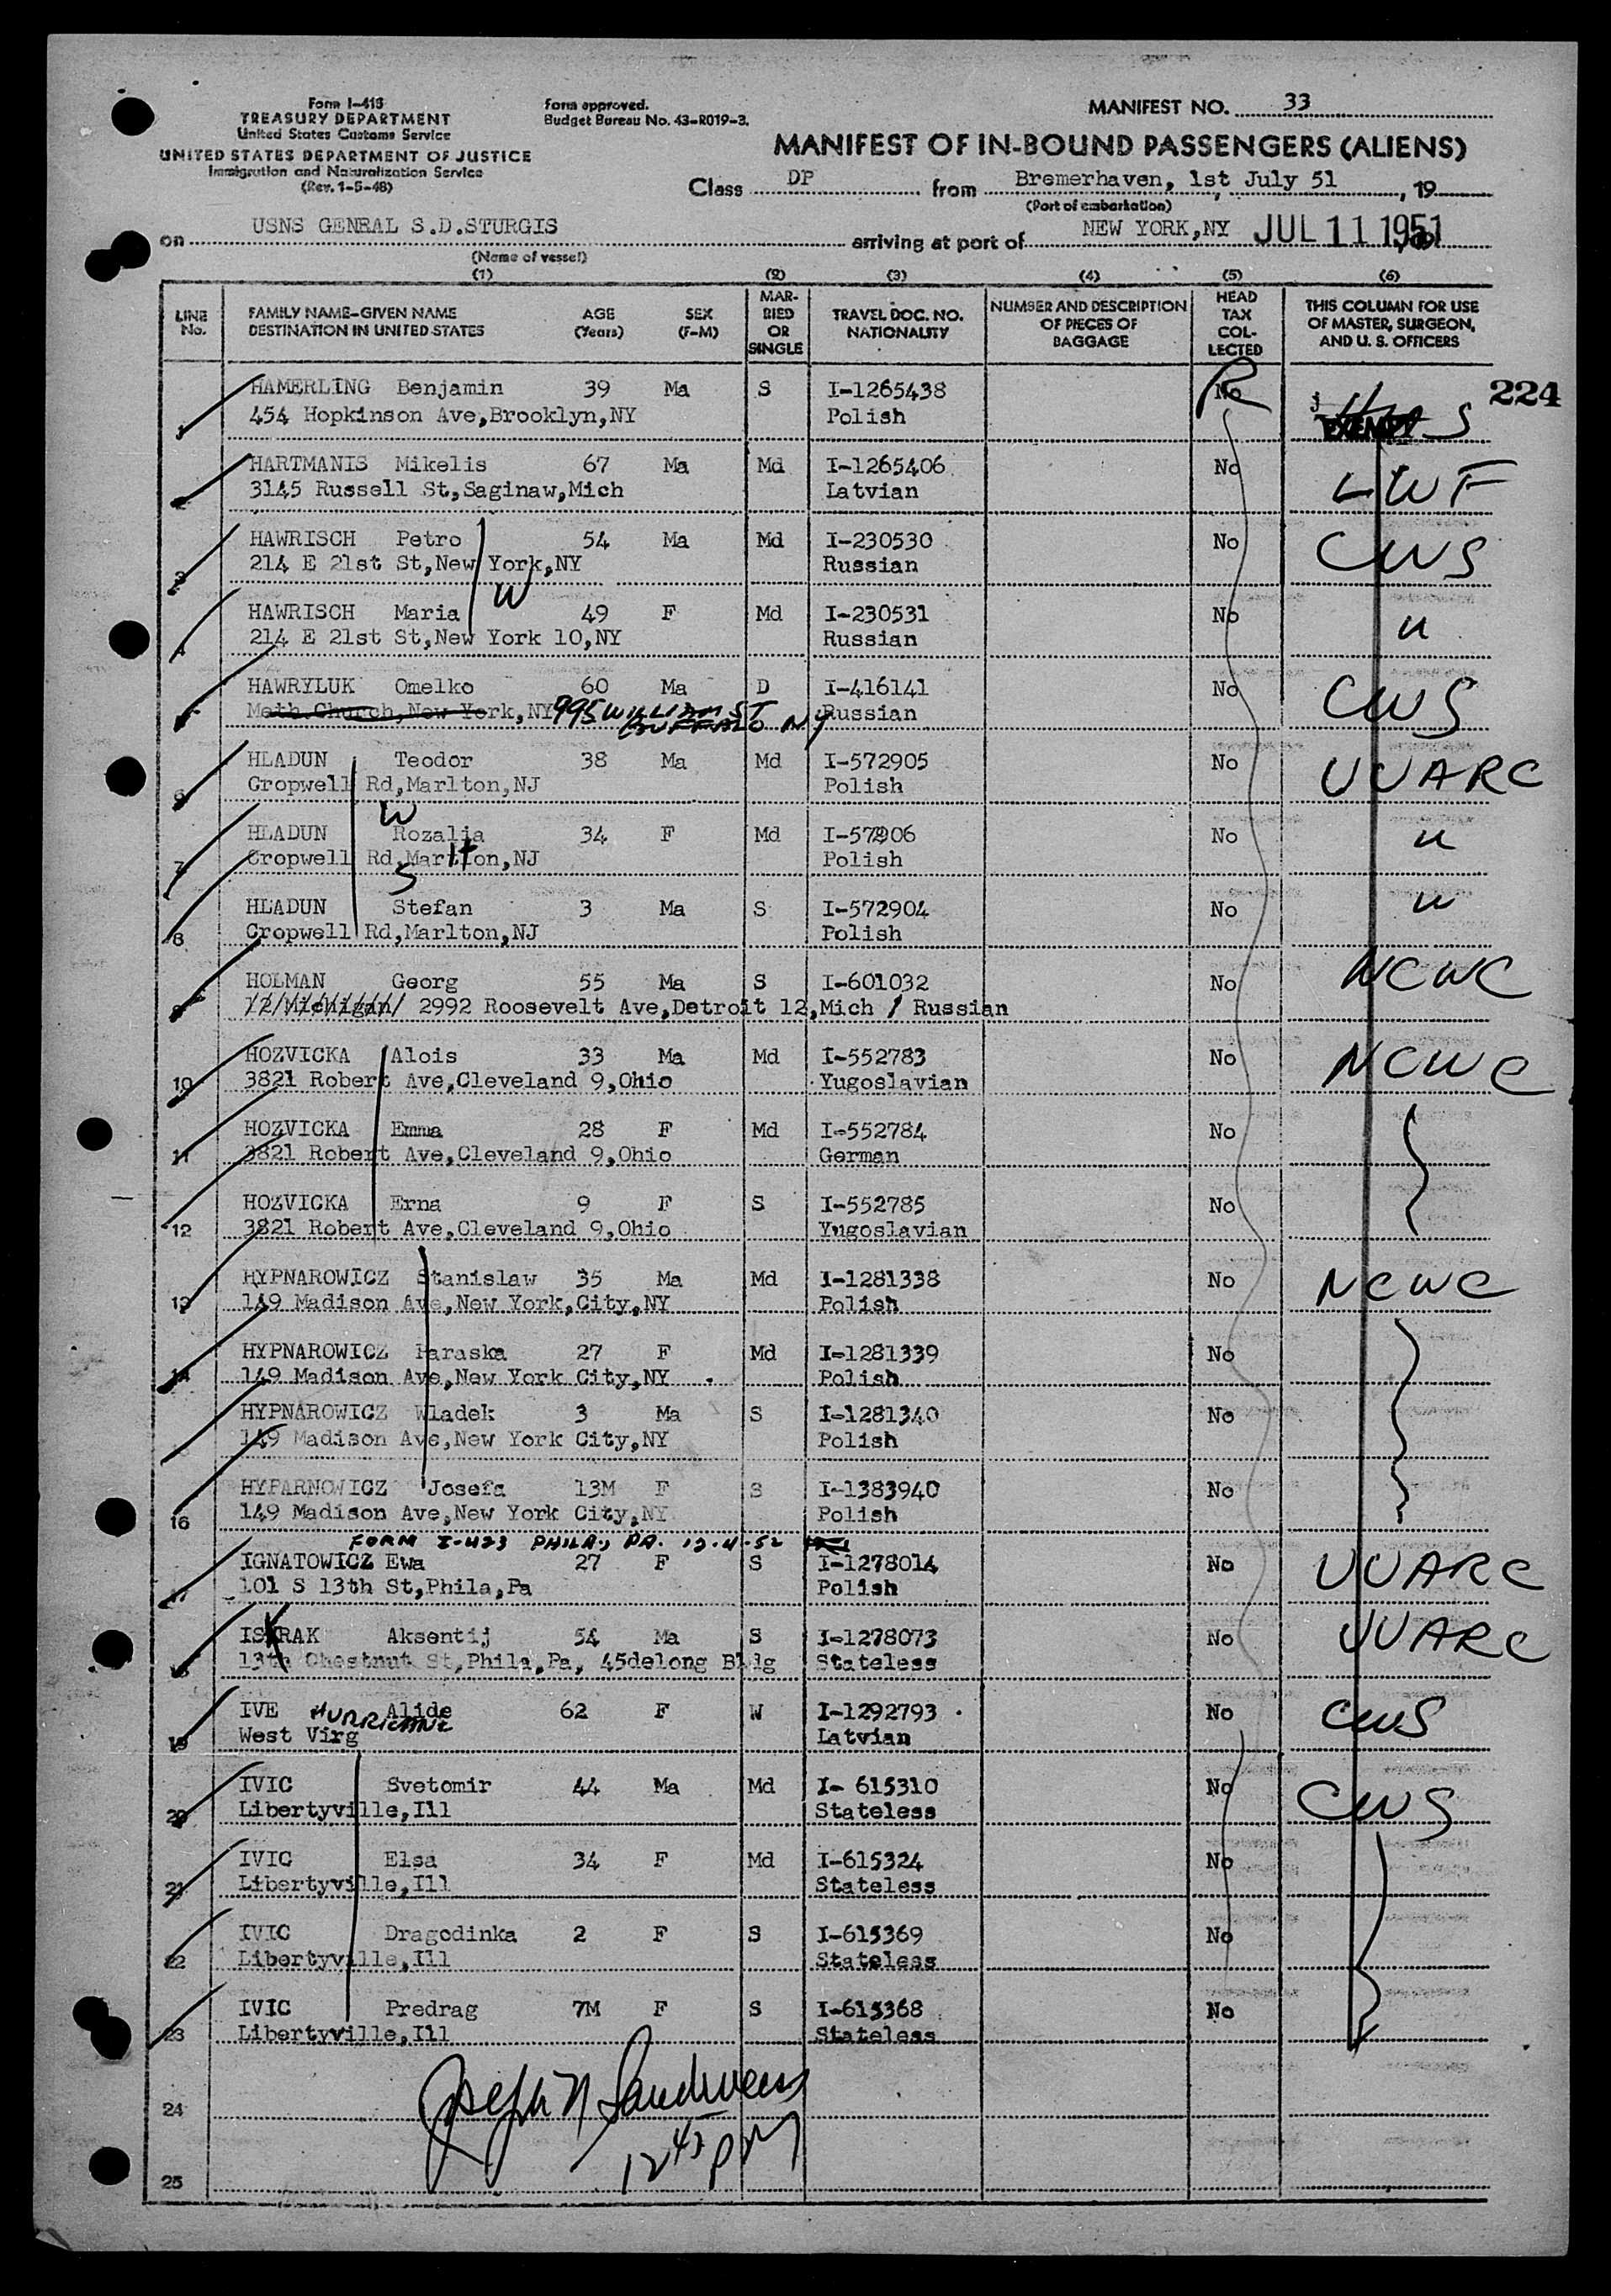 Form I-418
TREASURY DEPARTMENT
United States Customs Service
UNITED STATES DEPARTMENT OF JUSTICE
Immigration and Naturalization Service
(Rev. 1-5-48)
Form approved.
Budget Bureau No. 43-R019-3.
MANIFEST NO. 33
MANIFEST OF IN-BOUND PASSENGERS (ALIENS)
Class DP from Bremerhaven, 1st July 51, 19
(Port of embarkation)
on USNS GENRAL S.D.STURGIS arriving at port of NEW YORK,NY JUL 11 1951
(Name of vessel)
(1) (2) (3) (4) (5) (6)
LINE No. FAMILY NAME-GIVEN NAME DESTINATION IN UNITED STATES AGE (Years) SEX (F-M) MARRIED OR SINGLE TRAVEL DOC. NO. NATIONALITY NUMBER AND DESCRIPTION OF PIECES OF BAGGAGE HEAD TAX COLLECTED THIS COLUMN FOR USE OF MASTER, SURGEON, AND U. S. OFFICERS
224
1 HAMERLING Benjamin 39 Ma S I-1265438 No
454 Hopkinson Ave,Brooklyn,NY Polish
2 HARTMANIS Mikelis 67 Ma Md I-1265406 No LWF
3145 Russell St,Saginaw,Mich Latvian
3 HAWRISCH Petro 54 Ma Md I-230530 No CWS
214 E 21st St,New York,NY Russian
W
4 HAWRISCH Maria 49 F Md I-230531 No "
214 E 21st St,New York 10,NY Russian
5 HAWRYLUK Omelko 60 Ma D I-416141 No CWS
Meth Church,New York,NY 995 WILLIAM ST BUFFALO NY Russian
6 HLADUN Teodor 38 Ma Md I-572905 No UUARC
Cropwell Rd,Marlton,NJ Polish
W
7 HLADUN Rozalia 34 F Md I-572906 No "
Cropwell Rd,Marlton,NJ Polish
S
8 HLADUN Stefan 3 Ma S I-572904 No "
Cropwell Rd,Marlton,NJ Polish
9 HOLMAN Georg 55 Ma S I-601032 No NCWC
12/Michigan/ 2992 Roosevelt Ave,Detroit 12,Mich / Russian
10 HOZVICKA Alois 33 Ma Md I-552783 No NCWC
3821 Robert Ave,Cleveland 9,Ohio Yugoslavian
11 HOZVICKA Emma 28 F Md I-552784 No
3821 Robert Ave,Cleveland 9,Ohio German
12 HOZVICKA Erna 9 F S I-552785 No
3821 Robert Ave,Cleveland 9,Ohio Yugoslavian
13 HYPNAROWICZ Stanislaw 35 Ma Md I-1281338 No NCWC
149 Madison Ave,New York,City,NY Polish
14 HYPNAROWICZ Paraska 27 F Md I-1281339 No
149 Madison Ave,New York City,NY Polish
HYPNAROWICZ Wladek 3 Ma S I-1281340 No
149 Madison Ave,New York City,NY Polish
16 HYPARNOWICZ Josefa 13M F S I-1383940 No
149 Madison Ave,New York City,NY Polish
FORM I-423 PHILA, PA. 12-4-52
17 IGNATOWICZ Ewa 27 F S I-1278014 No UUARC
101 S 13th St,Phila,Pa Polish
18 ISKRAK Aksentij 54 Ma S I-1278073 No UUARC
13th Chestnut St,Phila,Pa, 45delong Bldg Stateless
19 IVE Alide 62 F W I-1292793 No CWS
HURRICANE
West Virg Latvian
20 IVIC Svetomir 44 Ma Md I- 615310 No CWS
Libertyville,Ill Stateless
21 IVIC Elsa 34 F Md I-615324 No
Libertyville,Ill Stateless
22 IVIC Dragodinka 2 F S I-615369 No
Libertyville,Ill Stateless
23 IVIC Predrag 7M F S I-615368 No
Libertyville,Ill Stateless
24
25
12 45 PM